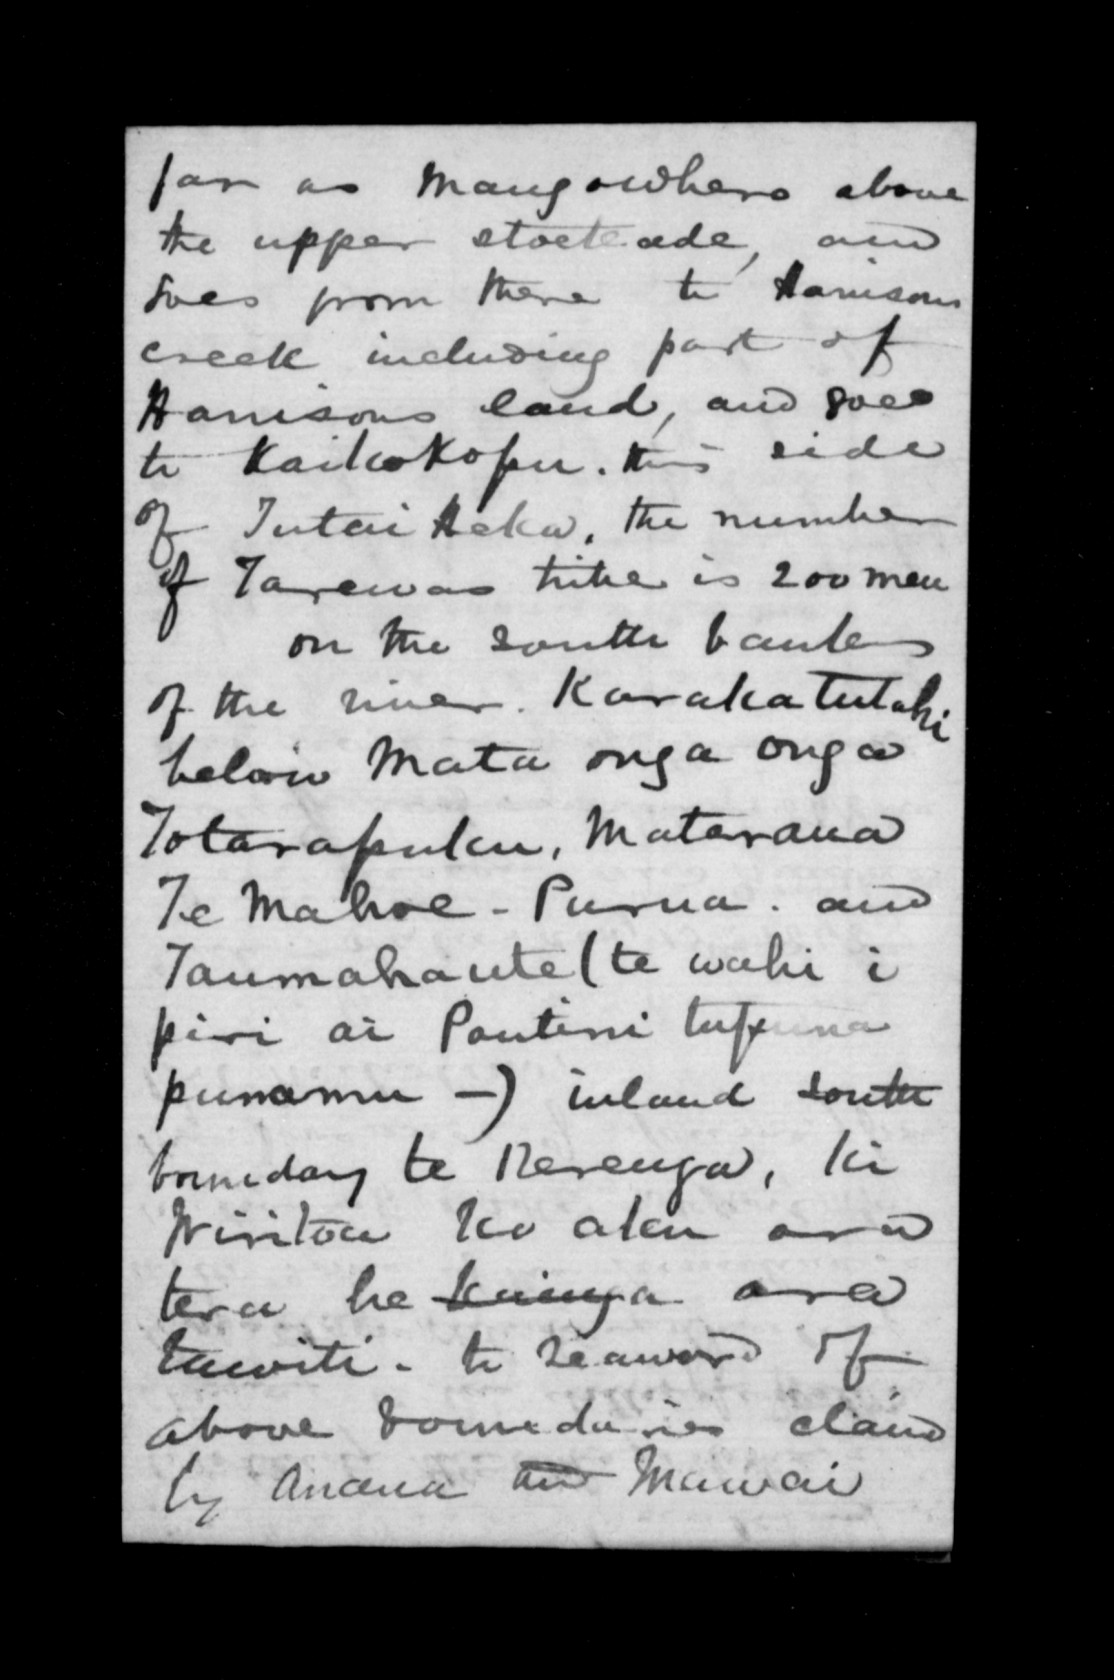 far as Mangowhero above
the upper stockade, and
goes from there to Harrisons
creek including part of
Harrisons land, and goes
to Kaikokopu. this side
of Tutai Heka, the number
of Tarewas tribe is 200 men
on the south banks
of the river. Karakatutahi
below Mata onga onga
Totarapuku, Matarawa
Te Mahoe - Purua. and
Taumahaute (te wahi i
piri ai Poutini tupuna
punamu -) inland south
boundary te Rerenga, ki
Wiritoa ko aku ara
tera he kainga ara
tawiti - to seaward of
above boundaries claimd
by Anaua and Mawai